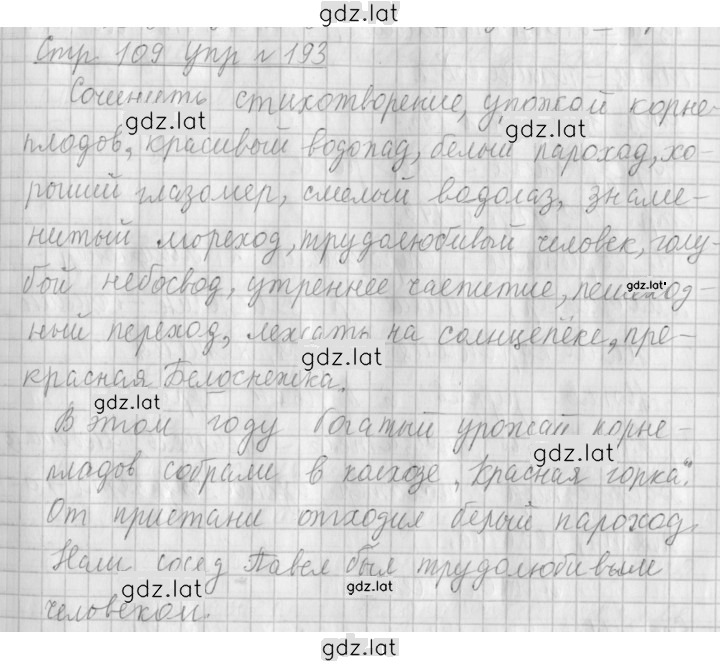 gdz.lat
Стр. 109 упр. № 193
Сочинять стихотворение, урожай корне-
gdz.lat gdz.lat
плодов, красивый водопад, белый пароход, хо-
роший глазомер, смелый водолаз, знаме-
нитый мореход, трудолюбивый человек, голу-
бой небосвод, утреннее чаепитие, пешеход-
gdz.lat
ный переход, лежать на солнцепёке, пре-
gdz.lat
красная Белоснежка.
gdz.lat
В этом году богатый урожай корне-
gdz.lat
плодов собрали в колхозе „Красная горка".
От пристани отходил белый пароход.
Наш сосед Павел был трудолюбивым
gdz.lat gdz.lat
человеком.
gdz.lat